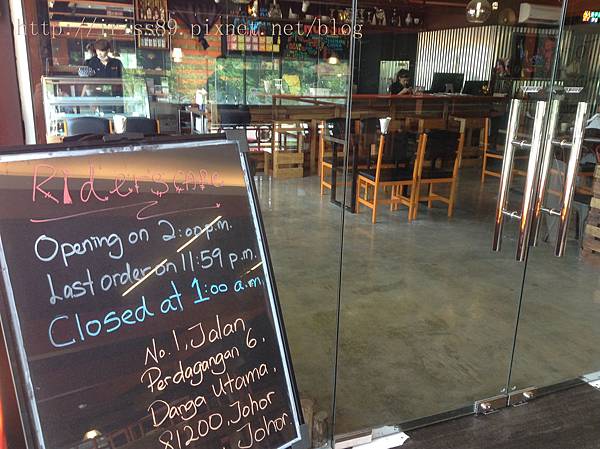 http://iriss89.pixnet.net/blog
Riderscafe
Opening on 2:00 p.m.
Last order on 11:59 p.m.
Closed at 1:00 a.m
No.1, Jalan
Perdagangan 6,
Danga Utama,
81200, Johor
, Johor.